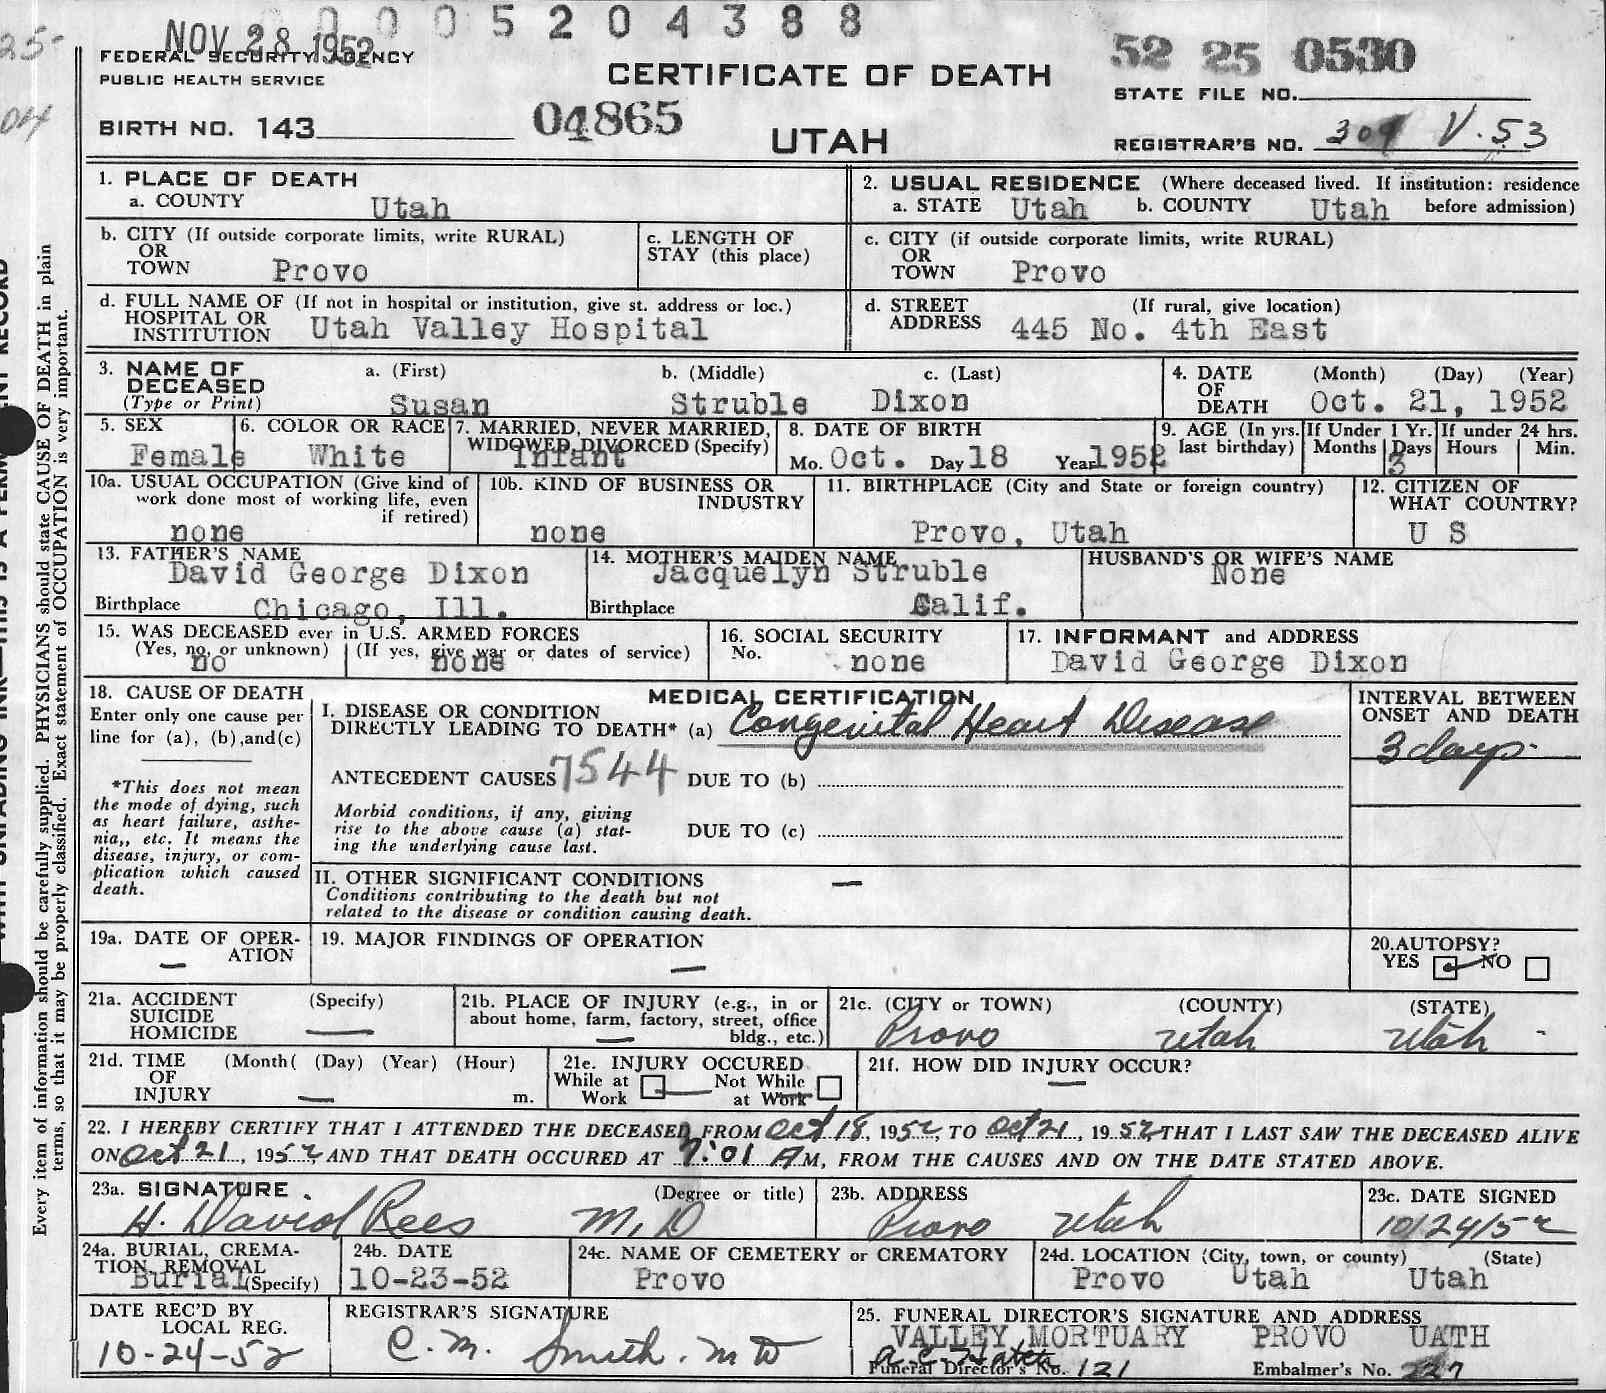 0005204388
NOV 28 1952
FEDERAL SECURITY AGENCY
PUBLIC HEALTH SERVICE
CERTIFICATE OF DEATH
UTAH
52 25 0530
STATE FILE NO.
BIRTH NO. 143
04865
REGISTRAR'S NO. 309 V.53
1. PLACE OF DEATH
a. COUNTY Utah
2. USUAL RESIDENCE (Where deceased lived. If institution: residence before admission)
a. STATE Utah b. COUNTY Utah
b. CITY (If outside corporate limits, write RURAL)
OR
TOWN Provo
c. LENGTH OF
STAY (this place)
c. CITY (if outside corporate limits, write RURAL)
OR
TOWN Provo
d. FULL NAME OF (If not in hospital or institution, give st. address or loc.)
HOSPITAL OR
INSTITUTION Utah Valley Hospital
d. STREET (If rural, give location)
ADDRESS 445 No. 4th East
3. NAME OF
DECEASED
(Type or Print)
a. (First) b. (Middle) c. (Last)
Susan Struble Dixon
4. DATE (Month) (Day) (Year)
OF
DEATH Oct. 21, 1952
5. SEX
Female
6. COLOR OR RACE
White
7. MARRIED, NEVER MARRIED,
WIDOWED DIVORCED (Specify)
Infant
8. DATE OF BIRTH
Mo. Oct. Day 18 Year 1952
9. AGE (In yrs.
last birthday)
If Under 1 Yr.
Months Days
3
If under 24 hrs.
Hours Min.
10a. USUAL OCCUPATION (Give kind of
work done most of working life, even
if retired)
none
10b. KIND OF BUSINESS OR
INDUSTRY
none
11. BIRTHPLACE (City and State or foreign country)
Provo, Utah
12. CITIZEN OF
WHAT COUNTRY?
U S
13. FATHER'S NAME
David George Dixon
Birthplace Chicago, Ill.
14. MOTHER'S MAIDEN NAME
Jacquelyn Struble
Birthplace Calif.
HUSBAND'S OR WIFE'S NAME
None
15. WAS DECEASED ever in U.S. ARMED FORCES
(Yes, no, or unknown) (If yes, give war or dates of service)
no none
16. SOCIAL SECURITY
No. none
17. INFORMANT and ADDRESS
David George Dixon
18. CAUSE OF DEATH
Enter only one cause per
line for (a), (b),and(c)
*This does not mean
the mode of dying, such
as heart failure, asthe-
nia,, etc. It means the
disease, injury, or com-
plication which caused
death.
MEDICAL CERTIFICATION
I. DISEASE OR CONDITION
DIRECTLY LEADING TO DEATH* (a) Congenital Heart Disease
ANTECEDENT CAUSES 7544 DUE TO (b)
Morbid conditions, if any, giving
rise to the above cause (a) stat-
ing the underlying cause last.
DUE TO (c)
INTERVAL BETWEEN
ONSET AND DEATH
3 days.
II. OTHER SIGNIFICANT CONDITIONS —
Conditions contributing to the death but not
related to the disease or condition causing death.
19a. DATE OF OPER-
ATION
—
19. MAJOR FINDINGS OF OPERATION
—
20.AUTOPSY?
YES NO
21a. ACCIDENT (Specify)
SUICIDE
HOMICIDE —
21b. PLACE OF INJURY (e.g., in or
about home, farm, factory, street, office
bldg., etc.)
—
21c. (CITY or TOWN) (COUNTY) (STATE)
Provo Utah Utah
21d. TIME (Month( (Day) (Year) (Hour)
OF
INJURY — m.
21e. INJURY OCCURED
While at Work
Not While at Work
21f. HOW DID INJURY OCCUR?
—
22. I HEREBY CERTIFY THAT I ATTENDED THE DECEASED FROM Oct 18, 1952, TO Oct 21, 1952 THAT I LAST SAW THE DECEASED ALIVE
ON Oct 21, 1952, AND THAT DEATH OCCURED AT 7:01 AM, FROM THE CAUSES AND ON THE DATE STATED ABOVE.
23a. SIGNATURE (Degree or title)
H. David Rees M.D
23b. ADDRESS
Provo Utah
23c. DATE SIGNED
10/24/52
24a. BURIAL, CREMA-
TION, REMOVAL
Burial (Specify)
24b. DATE
10-23-52
24c. NAME OF CEMETERY or CREMATORY
Provo
24d. LOCATION (City, town, or county) (State)
Provo Utah Utah
DATE REC'D BY
LOCAL REG.
10-24-52
REGISTRAR'S SIGNATURE
C. M. Smith. MD
25. FUNERAL DIRECTOR'S SIGNATURE AND ADDRESS
VALLEY MORTUARY PROVO UATH
Funeral Director's No. 121 Embalmer's No. 227
Every item of information should be carefully supplied. PHYSICIANS should state CAUSE OF DEATH in plain
terms, so that it may be properly classified. Exact statement of OCCUPATION is very important.